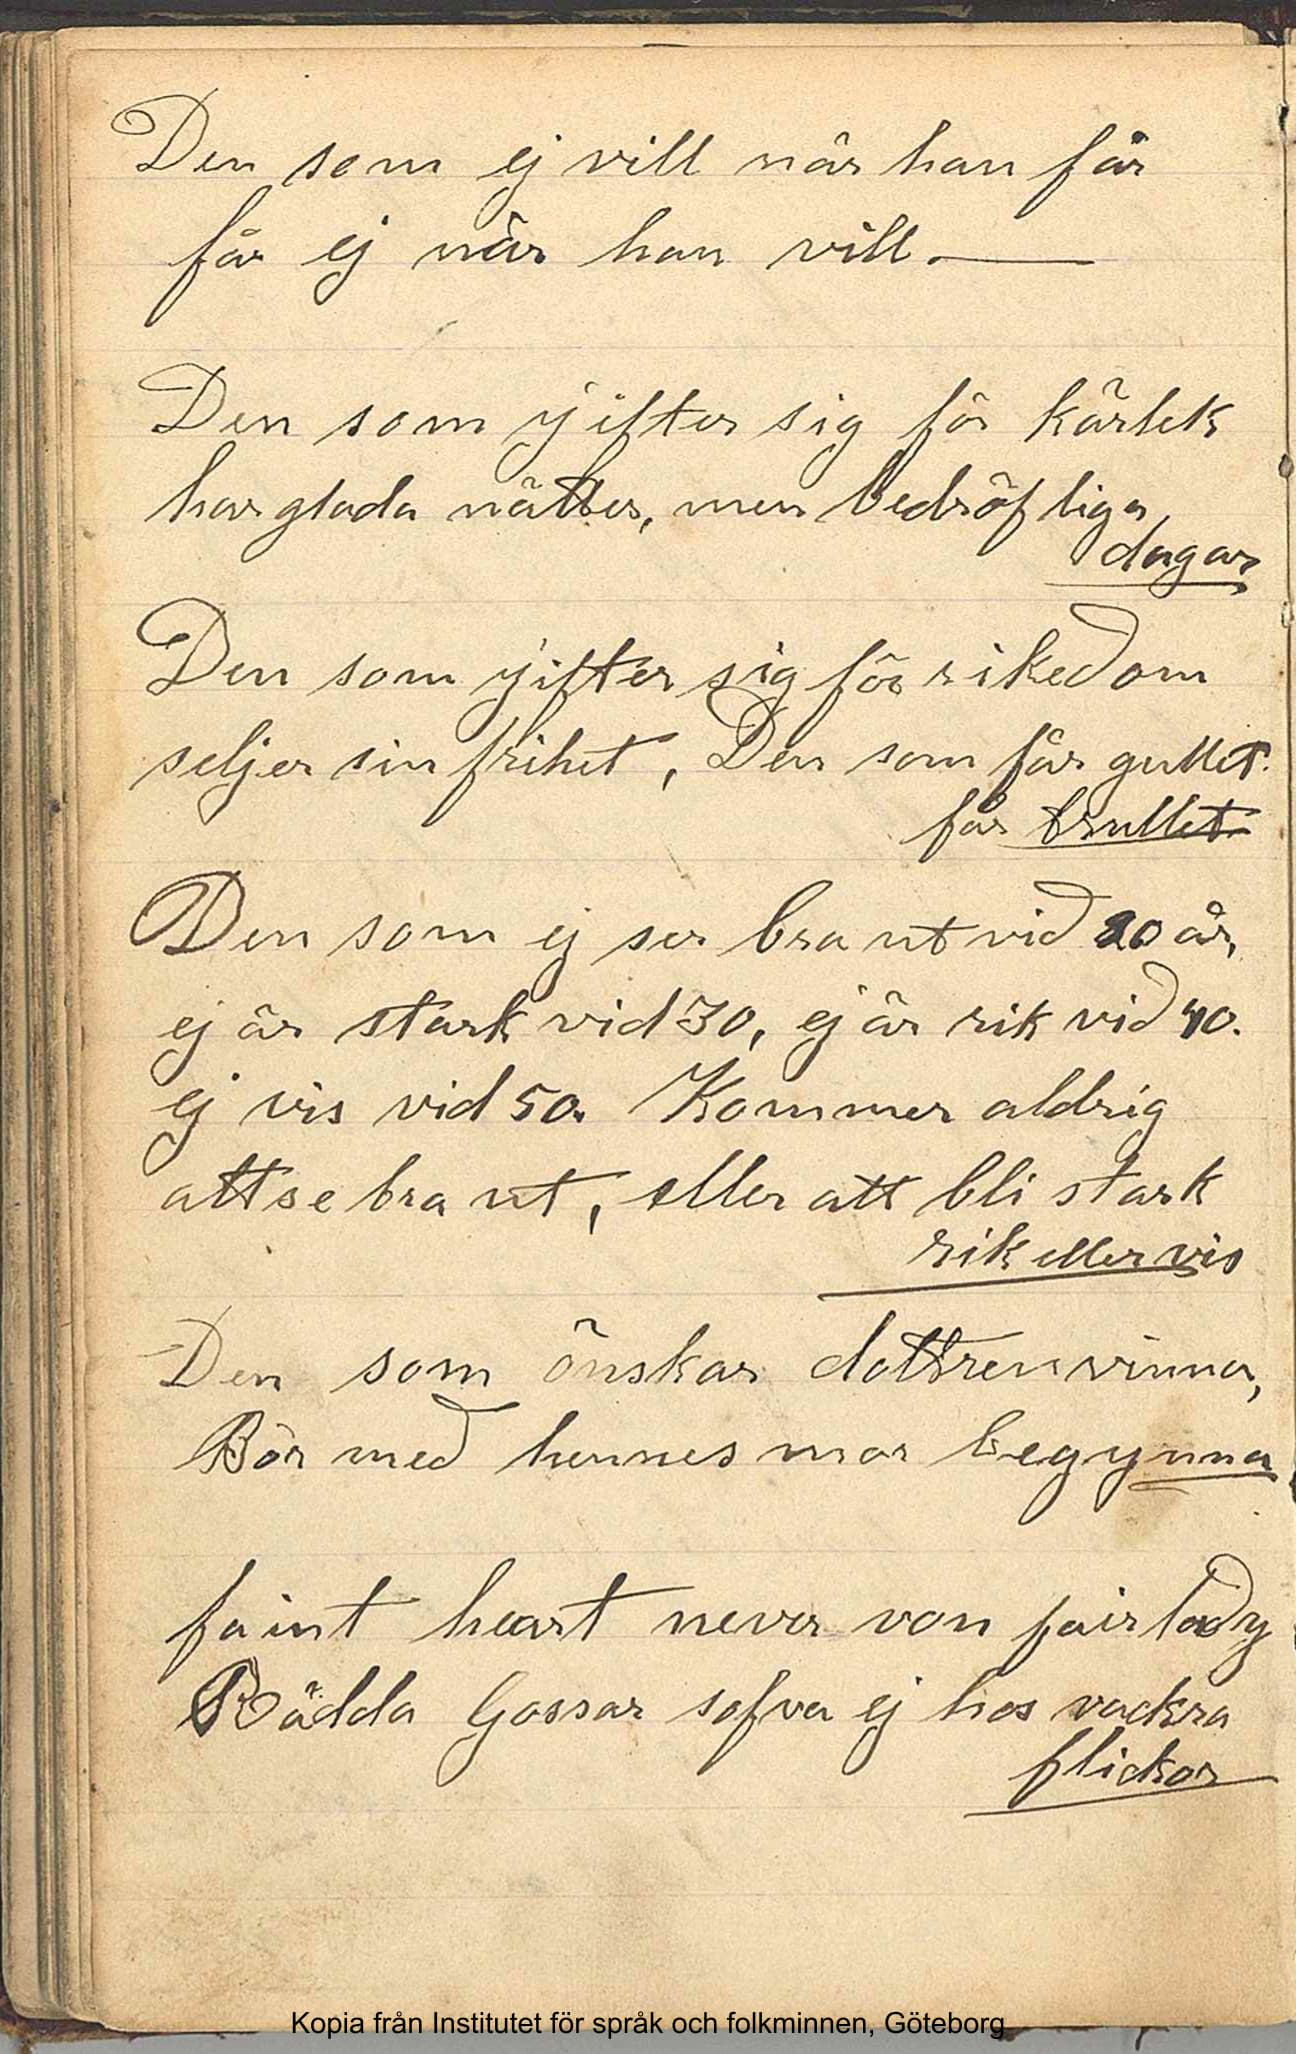 Den som ej vill når han får
får ej når han vill.
Den som gifter sig för kärlek
har glada nätter, men bedröfliga
dagar
Den som gifter sig för rikedom
seljer sin frihet, Den som får gullet
får brullet
Den som ej ser bra ut vid 20 år,
ej är stark vid 30, ej är rik vid 40.
ej vis vid 50. Kommer aldrig
att se bra ut, eller att bli stark
rik eller vis
Den som önskar dottren vinna,
Bör med hennes mor begynna
faint heart never von fair lady
Rädda Gossar sofva ej hos vackra
flickor
Kopia från Institutet för språk och folkminnen, Göteborg